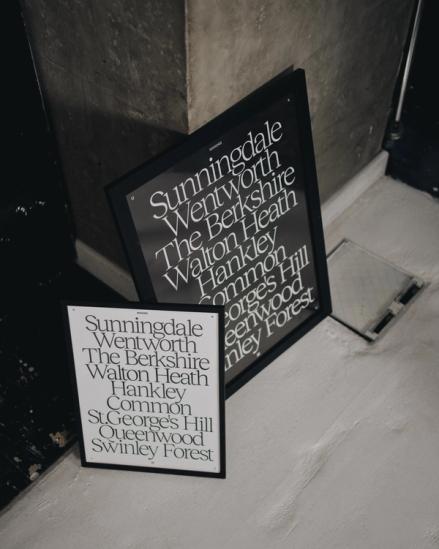 Sunningdale
Wentworth
The Berkshire
Walton Heath
Hankley
Common
George's Hill
eenwood
nley Forest
Sunningdale
Wentworth
The Berkshire
Walton Heath
Hankley
Common
St.George's Hill
Queenwood
Swinley Forest